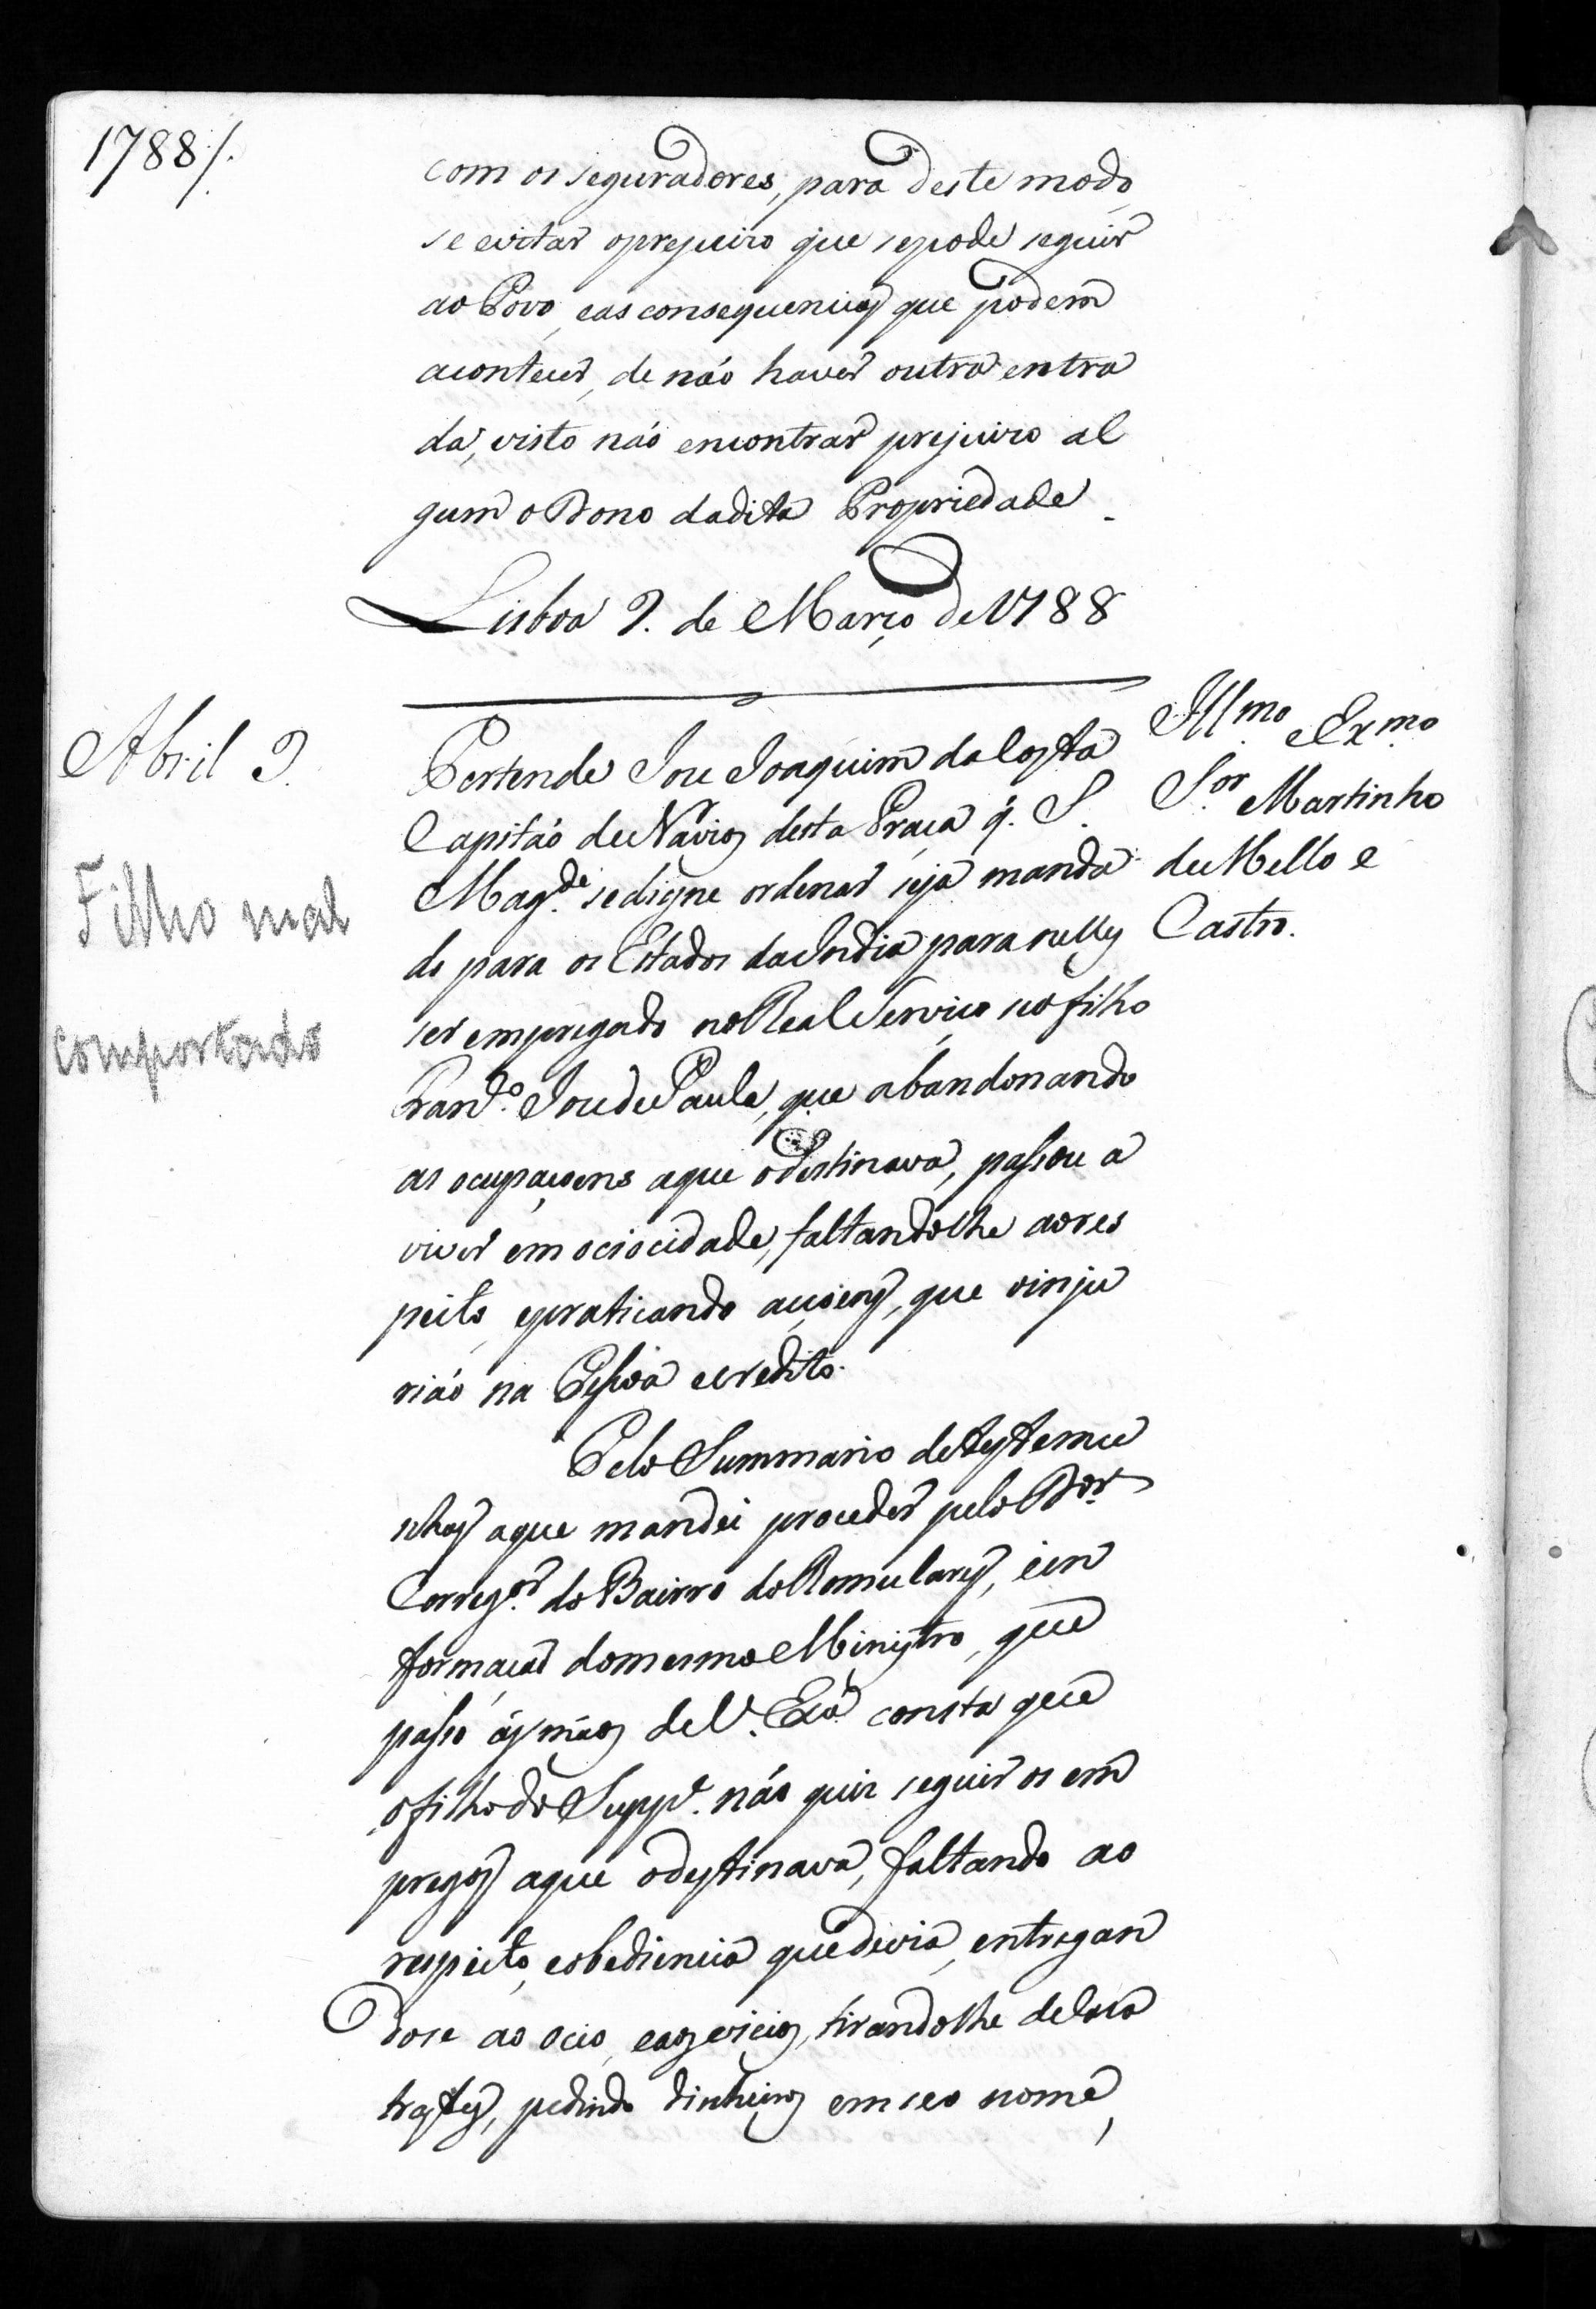 1788/.
com os seguradores, para deste modo
se evitar oprejuizo que sepode seguir
ao Povo, eas consequencias que podem
acontecer, de não haver outra entra
da, visto não encontrar prejuizo al
gum o Dono dadita Propriedade.
Lisboa 9. de Março de 1788
Abril 9.
Filho mal
comportado
Illmo e Exmo
Sor Martinho
de Mello e
Castro.
Pertende Joze Joaquim da Costa
Capitão de Navios desta Praça q. S.
Magde. sedigne ordenar seja manda
do para os Estados da India para nelles
ser empregado no Real Serviço seo filho
Franco. Joze de Paula, que abandonando
as ocupaçoens aque odestinava, passou a
viver em ociocidade, faltandolhe aores
peito, epraticando acçoens, que oinju
rião na Pessoa ecredito.
Pelo Summario detestemu
nhas aque mandei proceder pelo Dor.
Corregor. do Bairro do Romulares, ein
formação domesmo Ministro, que
passo ás mãos de V. Exa. consta que
ofilho do Suppe. não quiz seguir os em
pregos aque odestinava, faltando ao
respeito, eobediencia quedevia, entregan
dose ao ocio, eaos vicios, tirandolhe decaza
trastes, pedindo dinheiros em seo nome,